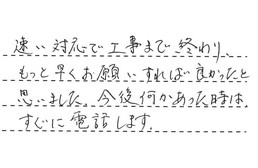 速い対応で工事まで終わり、
もっと早くお願いすれば良かったと
思いました。今後何かあった時は、
すぐに電話します。